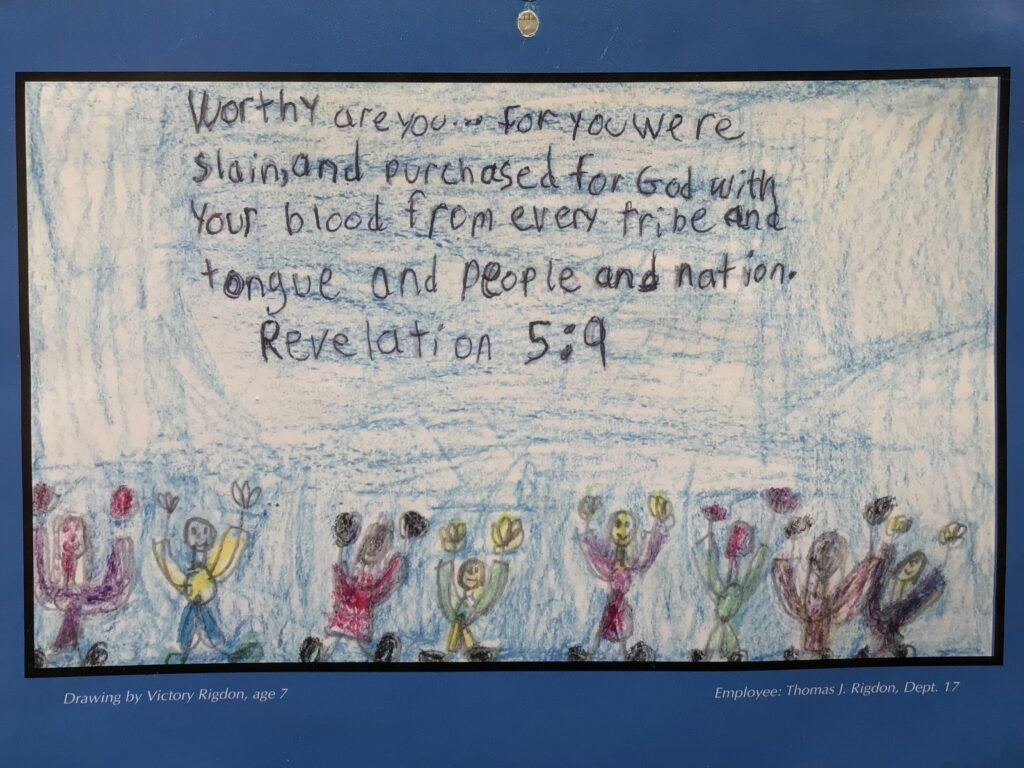 Worthy are you... for you were
slain, and purchased for God with
Your blood from every tribe and
tongue and people and nation.
Revelation 5:9
Drawing by Victory Rigdon, age 7
Employee: Thomas J. Rigdon, Dept. 17